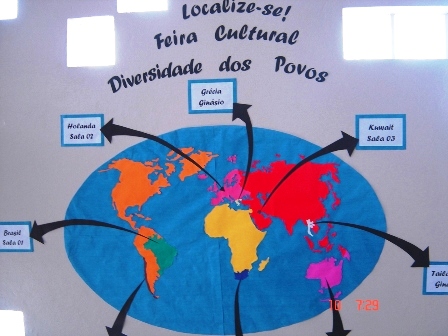 Localize-se!
Feira Cultural
Diversidade dos Povos
Grécia
Ginásio
Holanda
Sala 02
Kuwait
Sala 03
Brasil
Sala 01
7:29